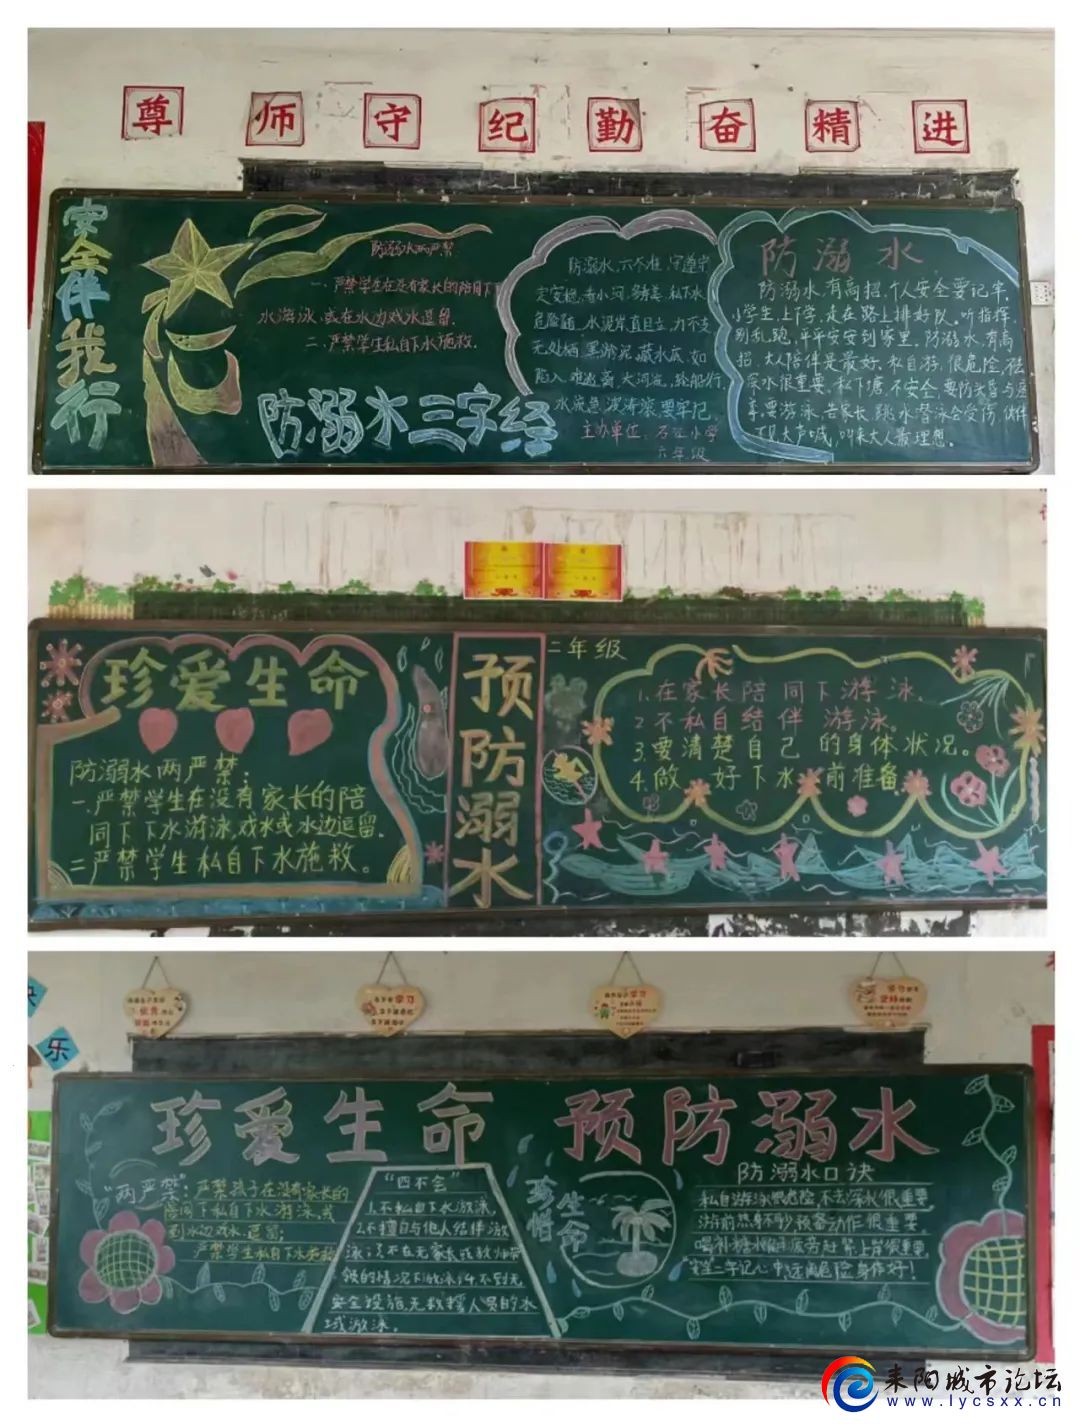 尊师守纪勤奋精进
安全伴我行
防溺水两严禁
一、严禁学生在没有家长的陪同下下
水游泳,或在水边戏水逗留.
二、严禁学生私自下水施救.
防溺水三字经
防溺水,六不准,守遵守
危险随,水泥岸,直且立,力不支
无处栖,黑淤泥,藏水底,如
陷入,难逃离,大河流,轮船行,
水流急,波涛滚,要牢记。
主办单位:石江小学
六年级
防溺水
防溺水,有高招,个人安全要记牢,
小学生,上下学,走在路上排好队。听指挥,
别乱跑,平平安安到家里。防溺水,有高
招,大人陪伴是最好,私自游,很危险,
深水很重要,私下塘,不安全,要防
要游泳,告家长,跳水潜泳会受伤,伙伴
大声喊,叫来大人最理想。
珍爱生命
防溺水,两严禁;
一.严禁学生在没有家长的陪
同下下水游泳,戏水或水边逗留.
二严禁学生私自下水施救。
预防溺水
二年级
1.在家长陪同下游泳.
2.不私自结伴游泳。
3.要清楚自己的身体状况。
4.做好下水前准备
快
乐
学习
珍爱生命 预防溺水
"两严禁":严禁孩子在没有家长的
陪同下私自下水游泳,或
到水边戏水逗留;
严禁学生私自下水施救
"四不会"
1.不私自下水游泳,
2.不擅自与他人结伴游
泳;3不在无家长或教师带
领的情况下游泳;4不到无
安全设施,无救援人员的水
域游泳。
珍惜生命
防溺水口诀
私自游泳很危险,不去深水很重要
游前热身不少预备动作很重要
喝补糖水解疲劳赶紧上岸很重要
安全二字记心中远离危险身体好!
耒阳城市论坛
www.lycsxx.cn